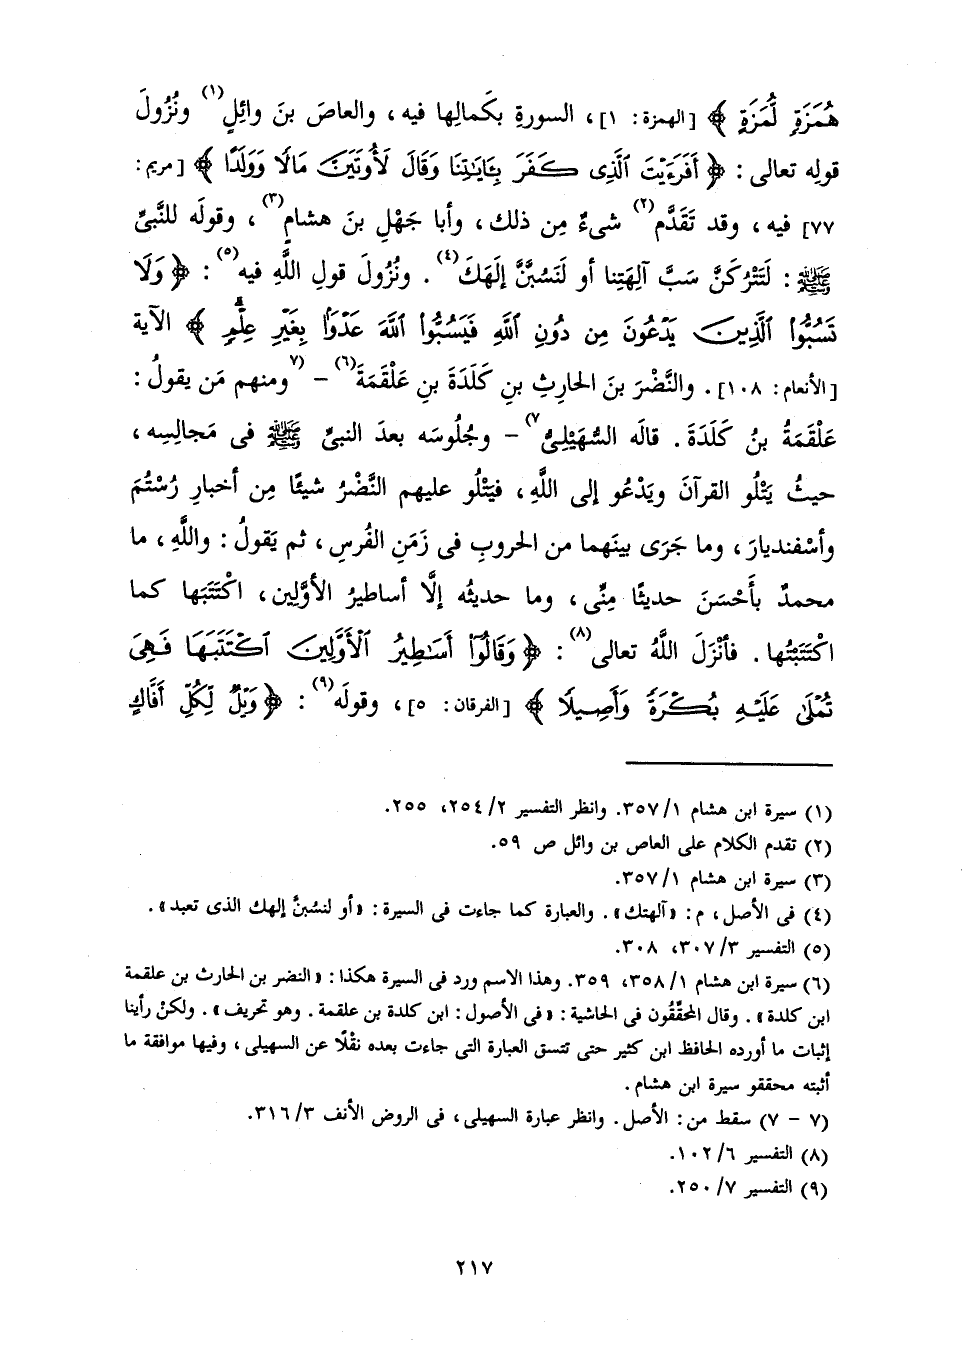 هُمَزَةٍ لُّمَزَةٍ ﴾ [الهمزة: ١]، السورةِ بكَمالِها فيه، والعاصَ بنَ وائِلٍ(١) ونُزُولَ
قولِه تعالى: ﴿ أَفَرَءَيْتَ ٱلَّذِى كَفَرَ بِـَٔايَـٰتِنَا وَقَالَ لَأُوتَيَنَّ مَالًا وَوَلَدًا ﴾ [مريم:
٧٧] فيه، وقد تَقَدَّم(٢) شىءٌ مِن ذلك، وأبا جَهْلِ بنَ هشامٍ(٣)، وقولَه للنَّبىِّ
ﷺ: لَتَتْرُكَنَّ سَبَّ آلِهَتِنا أو لَنَسُبَّنَّ إلَهَكَ(٤). ونُزُولَ قولِ اللَّهِ فيه(٥): ﴿ وَلَا
تَسُبُّوا۟ ٱلَّذِينَ يَدْعُونَ مِن دُونِ ٱللَّهِ فَيَسُبُّوا۟ ٱللَّهَ عَدْوًۢا بِغَيْرِ عِلْمٍ ﴾ الآية
[الأنعام: ١٠٨]. والنَّضْرَ بنَ الحارِثِ بنِ كَلَدَةَ بنِ عَلْقَمَةَ(٦) - (٧ومنهم مَن يقولُ:
عَلْقَمَةُ بنُ كَلَدَةَ. قاله السُّهَيْلِىُّ٧) - وجُلُوسَه بعدَ النبىِّ ﷺ فى مَجالِسِه،
حيثُ يَتْلُو القرآنَ ويَدْعُو إلى اللَّهِ، فيَتْلُو عليهم النَّضْرُ شيئًا مِن أخبارِ رُسْتُمَ
وأسْفِنديارَ، وما جَرَى بينَهما من الحروبِ فى زَمَنِ الفُرسِ، ثم يَقولُ: واللَّهِ، ما
محمدٌ بأَحْسَنَ حديثًا مِنِّى، وما حديثُه إلَّا أساطيرُ الأوَّلِين، اكْتَتَبَها كما
اكْتَتَبْتُها. فأنْزَلَ اللَّهُ تعالى(٨): ﴿ وَقَالُوٓا۟ أَسَـٰطِيرُ ٱلْأَوَّلِينَ ٱكْتَتَبَهَا فَهِىَ
تُمْلَىٰ عَلَيْهِ بُكْرَةً وَأَصِيلًا ﴾ [الفرقان: ٥]، وقولَه(٩): ﴿ وَيْلٌ لِّكُلِّ أَفَّاكٍ
(١) سيرة ابن هشام ١/ ٣٥٧. وانظر التفسير ٢/ ٢٥٤، ٢٥٥.
(٢) تقدم الكلام على العاص بن وائل ص ٥٩.
(٣) سيرة ابن هشام ١/ ٣٥٧.
(٤) فى الأصل، م: «آلهتك». والعبارة كما جاءت فى السيرة: «أو لنسُبنَّ إلهك الذى تعبد».
(٥) التفسير ٣/ ٣٠٧، ٣٠٨.
(٦) سيرة ابن هشام ١/ ٣٥٨، ٣٥٩. وهذا الاسم ورد فى السيرة هكذا: «النضر بن الحارث بن علقمة
ابن كلدة». وقال المحقِّقُون فى الحاشية: «فى الأصول: ابن كلدة بن علقمة. وهو تحريف». ولكنْ رأينا
إثبات ما أورده الحافظ ابن كثير حتى تتسق العبارة التى جاءت بعده نقْلًا عن السهيلى، وفيها موافقة ما
أثبته محققو سيرة ابن هشام.
(٧ - ٧) سقط من: الأصل. وانظر عبارة السهيلى، فى الروض الأنف ٣/ ٣١٦.
(٨) التفسير ٦/ ١٠٢.
(٩) التفسير ٧/ ٢٥٠.
٢١٧